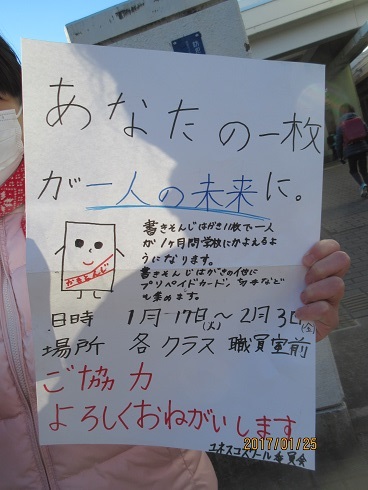 あなたの一枚
が一人の未来に。
書きそんじはがき11枚で一人
が1ヶ月間学校にかよえるよ
うになります。
書きそんじはがきの他に
プリペイドカード、切手なども
集めます。
かきそんじ
日時 1月17日(火)~2月3日(金)
場所 各クラス 職員室前
ご協力
よろしくおねがいします
ユネスコスクール委員会
2017/01/25